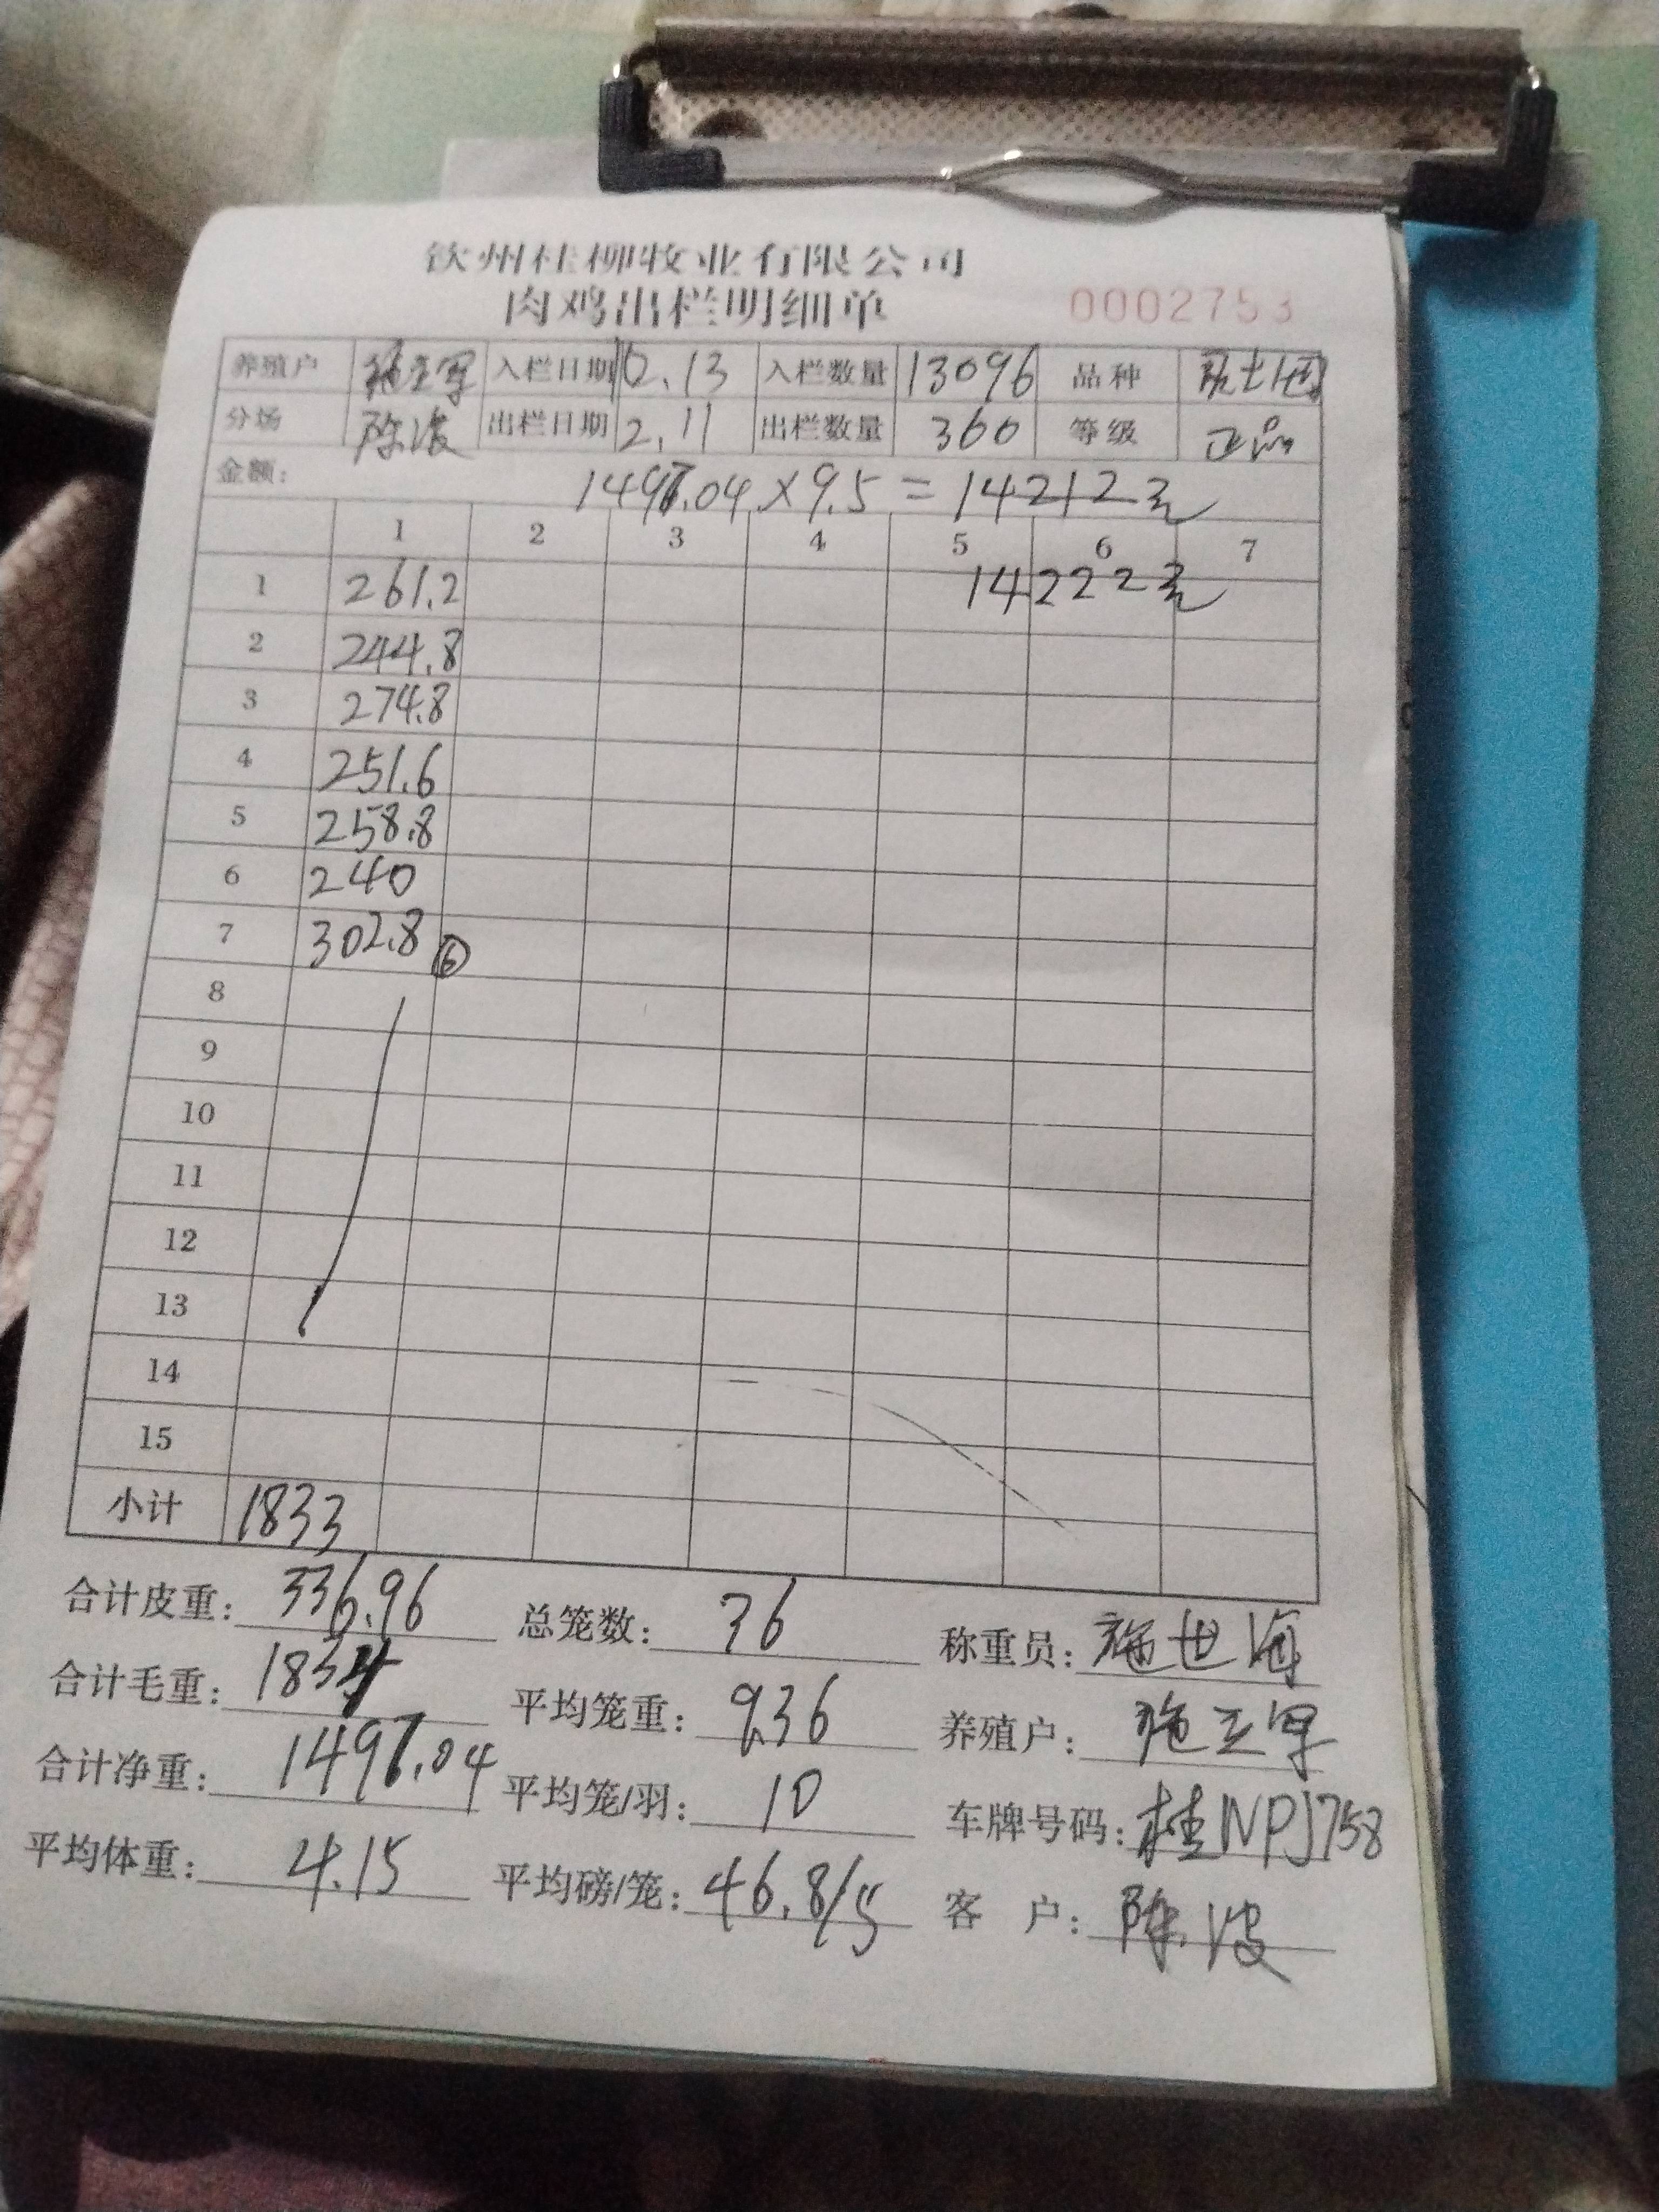 钦州桂柳牧业有限公司
肉鸡出栏明细单 0002753
养殖户 施立军 入栏日期 10.13 入栏数量 13096 品种
分场 陈波 出栏日期 2.11 出栏数量 360 等级 正品
金额: 1497.04×9.5=14212元
1 2 3 4 5 6 7
14222元
1 261.2
2 244.8
3 274.8
4 251.6
5 258.8
6 240
7 302.8 ⑥
8
9
10
11
12
13
14
15
小计 1833
合计皮重: 336.96 总笼数: 36 称重员: 施世海
合计毛重: 1834 平均笼重: 9.36 养殖户: 施立军
合计净重: 1497.04 平均笼/羽: 10 车牌号码: 桂NPJ758
平均体重: 4.15 平均磅/笼: 46.8/5 客 户: 陈波